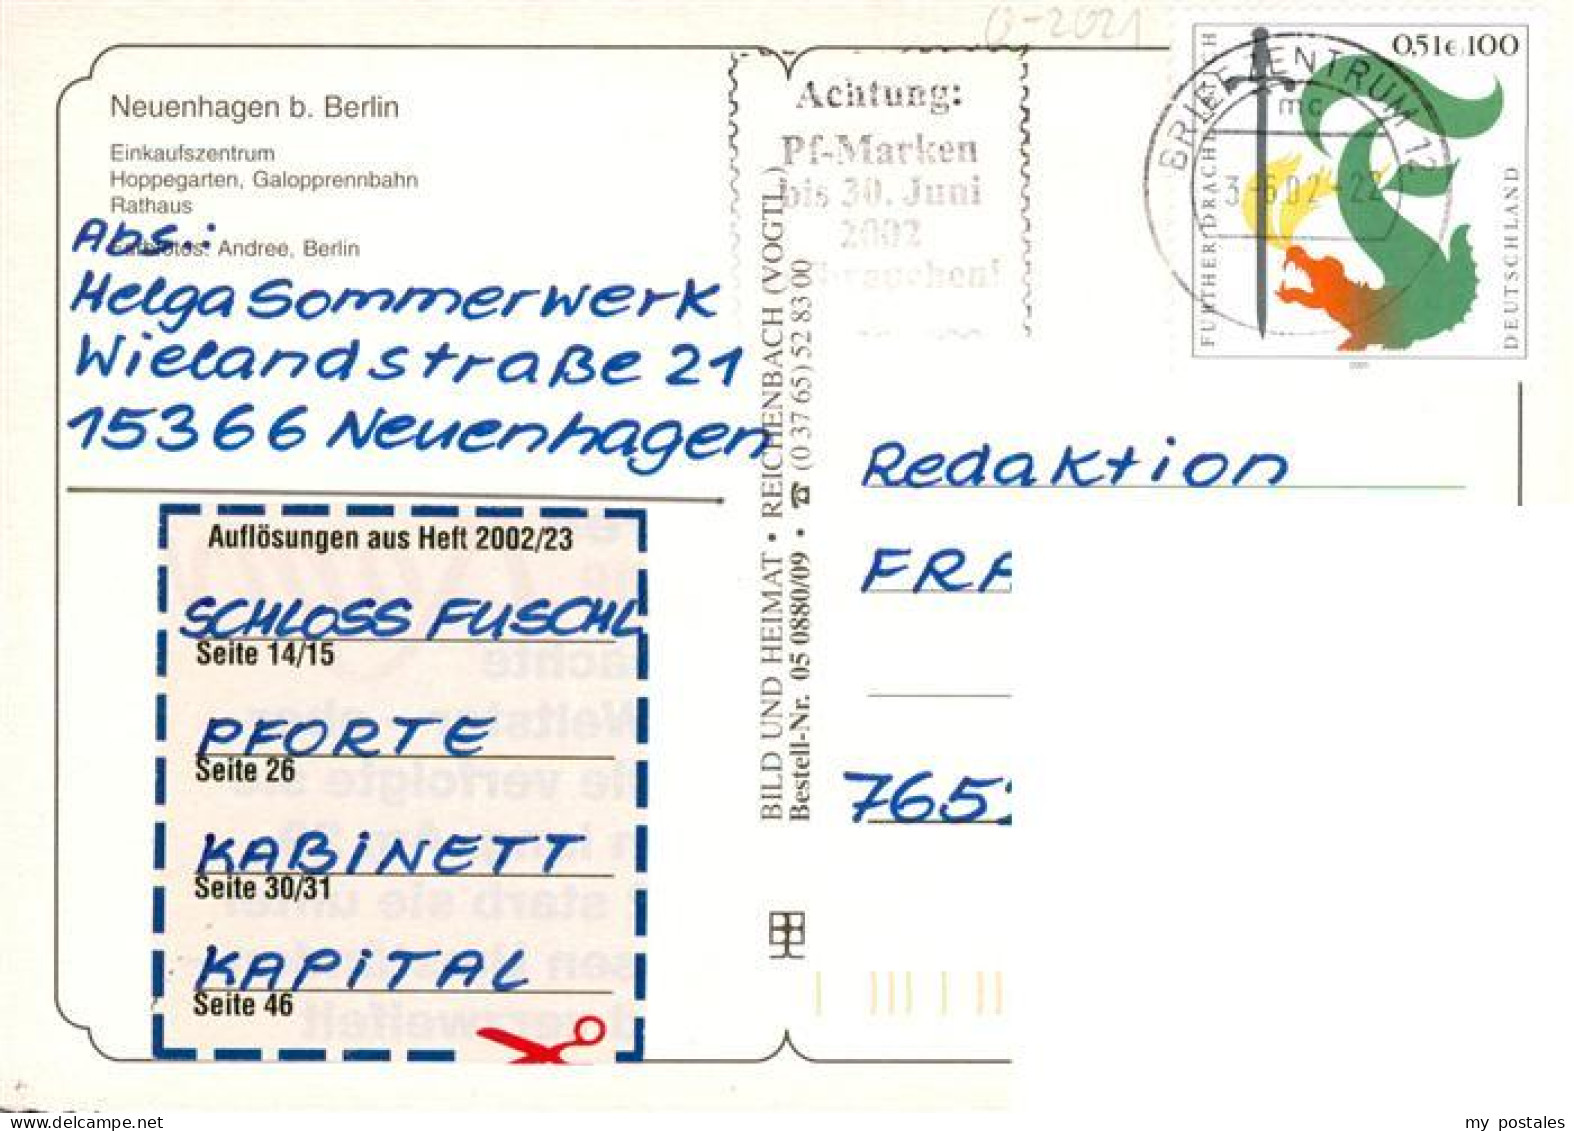 Neuenhagen b. Berlin
Einkaufszentrum
Hoppegarten, Galopprennbahn
Rathaus
Farbfotos: Andree, Berlin
Abs.:
Helga Sommerwerk
Wielandstraße 21
15366 Neuenhagen
Auflösungen aus Heft 2002/23
SCHLOSS FUSCHL
Seite 14/15
PFORTE
Seite 26
KABINETT
Seite 30/31
KAPITAL
Seite 46
BILD UND HEIMAT • REICHENBACH (VOGTL.)
Bestell-Nr. 05 0880/09 • ☎ (0 37 65) 52 83 00
Achtung:
Pf-Marken
bis 30. Juni
2002
-2021
0,51€ 100
FURTHER DRACHENSTICH
DEUTSCHLAND
2001
BRIEFZENTRUM 12
mc
3-6.02-22
Redaktion
FRA
765
my postales